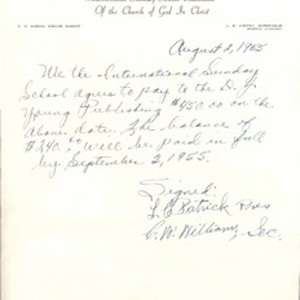 Of the Church of God In Christ
August 2, 1955
We the International Sunday
School agrees to pay to the D. J.
Young Publishing $450.00 on the
above date. The balance of
$240.00 will be paid in full
by September 2, 1955.
Signed:
L. C. Patrick Pres
C. W. Williams, Sec.